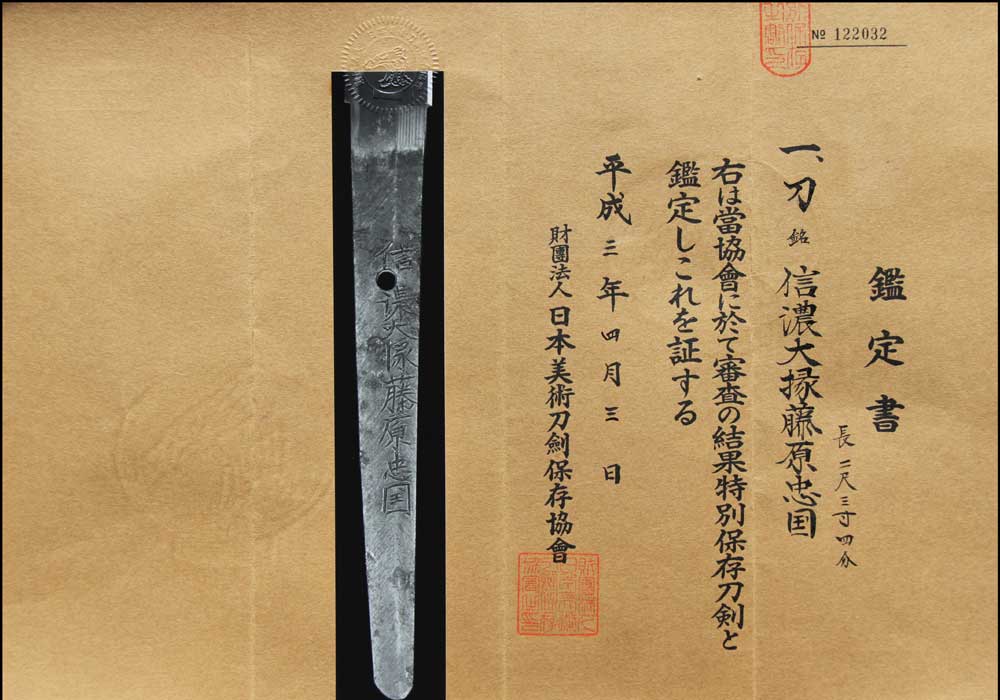 № 122032
鑑定書
一、刀 銘 信濃大掾藤原忠国
長二尺三寸四分
右は當協會に於て審査の結果特別保存刀剣と
鑑定しこれを証する
平成三年四月三日
財團法人日本美術刀剣保存協會
信濃大掾藤原忠国